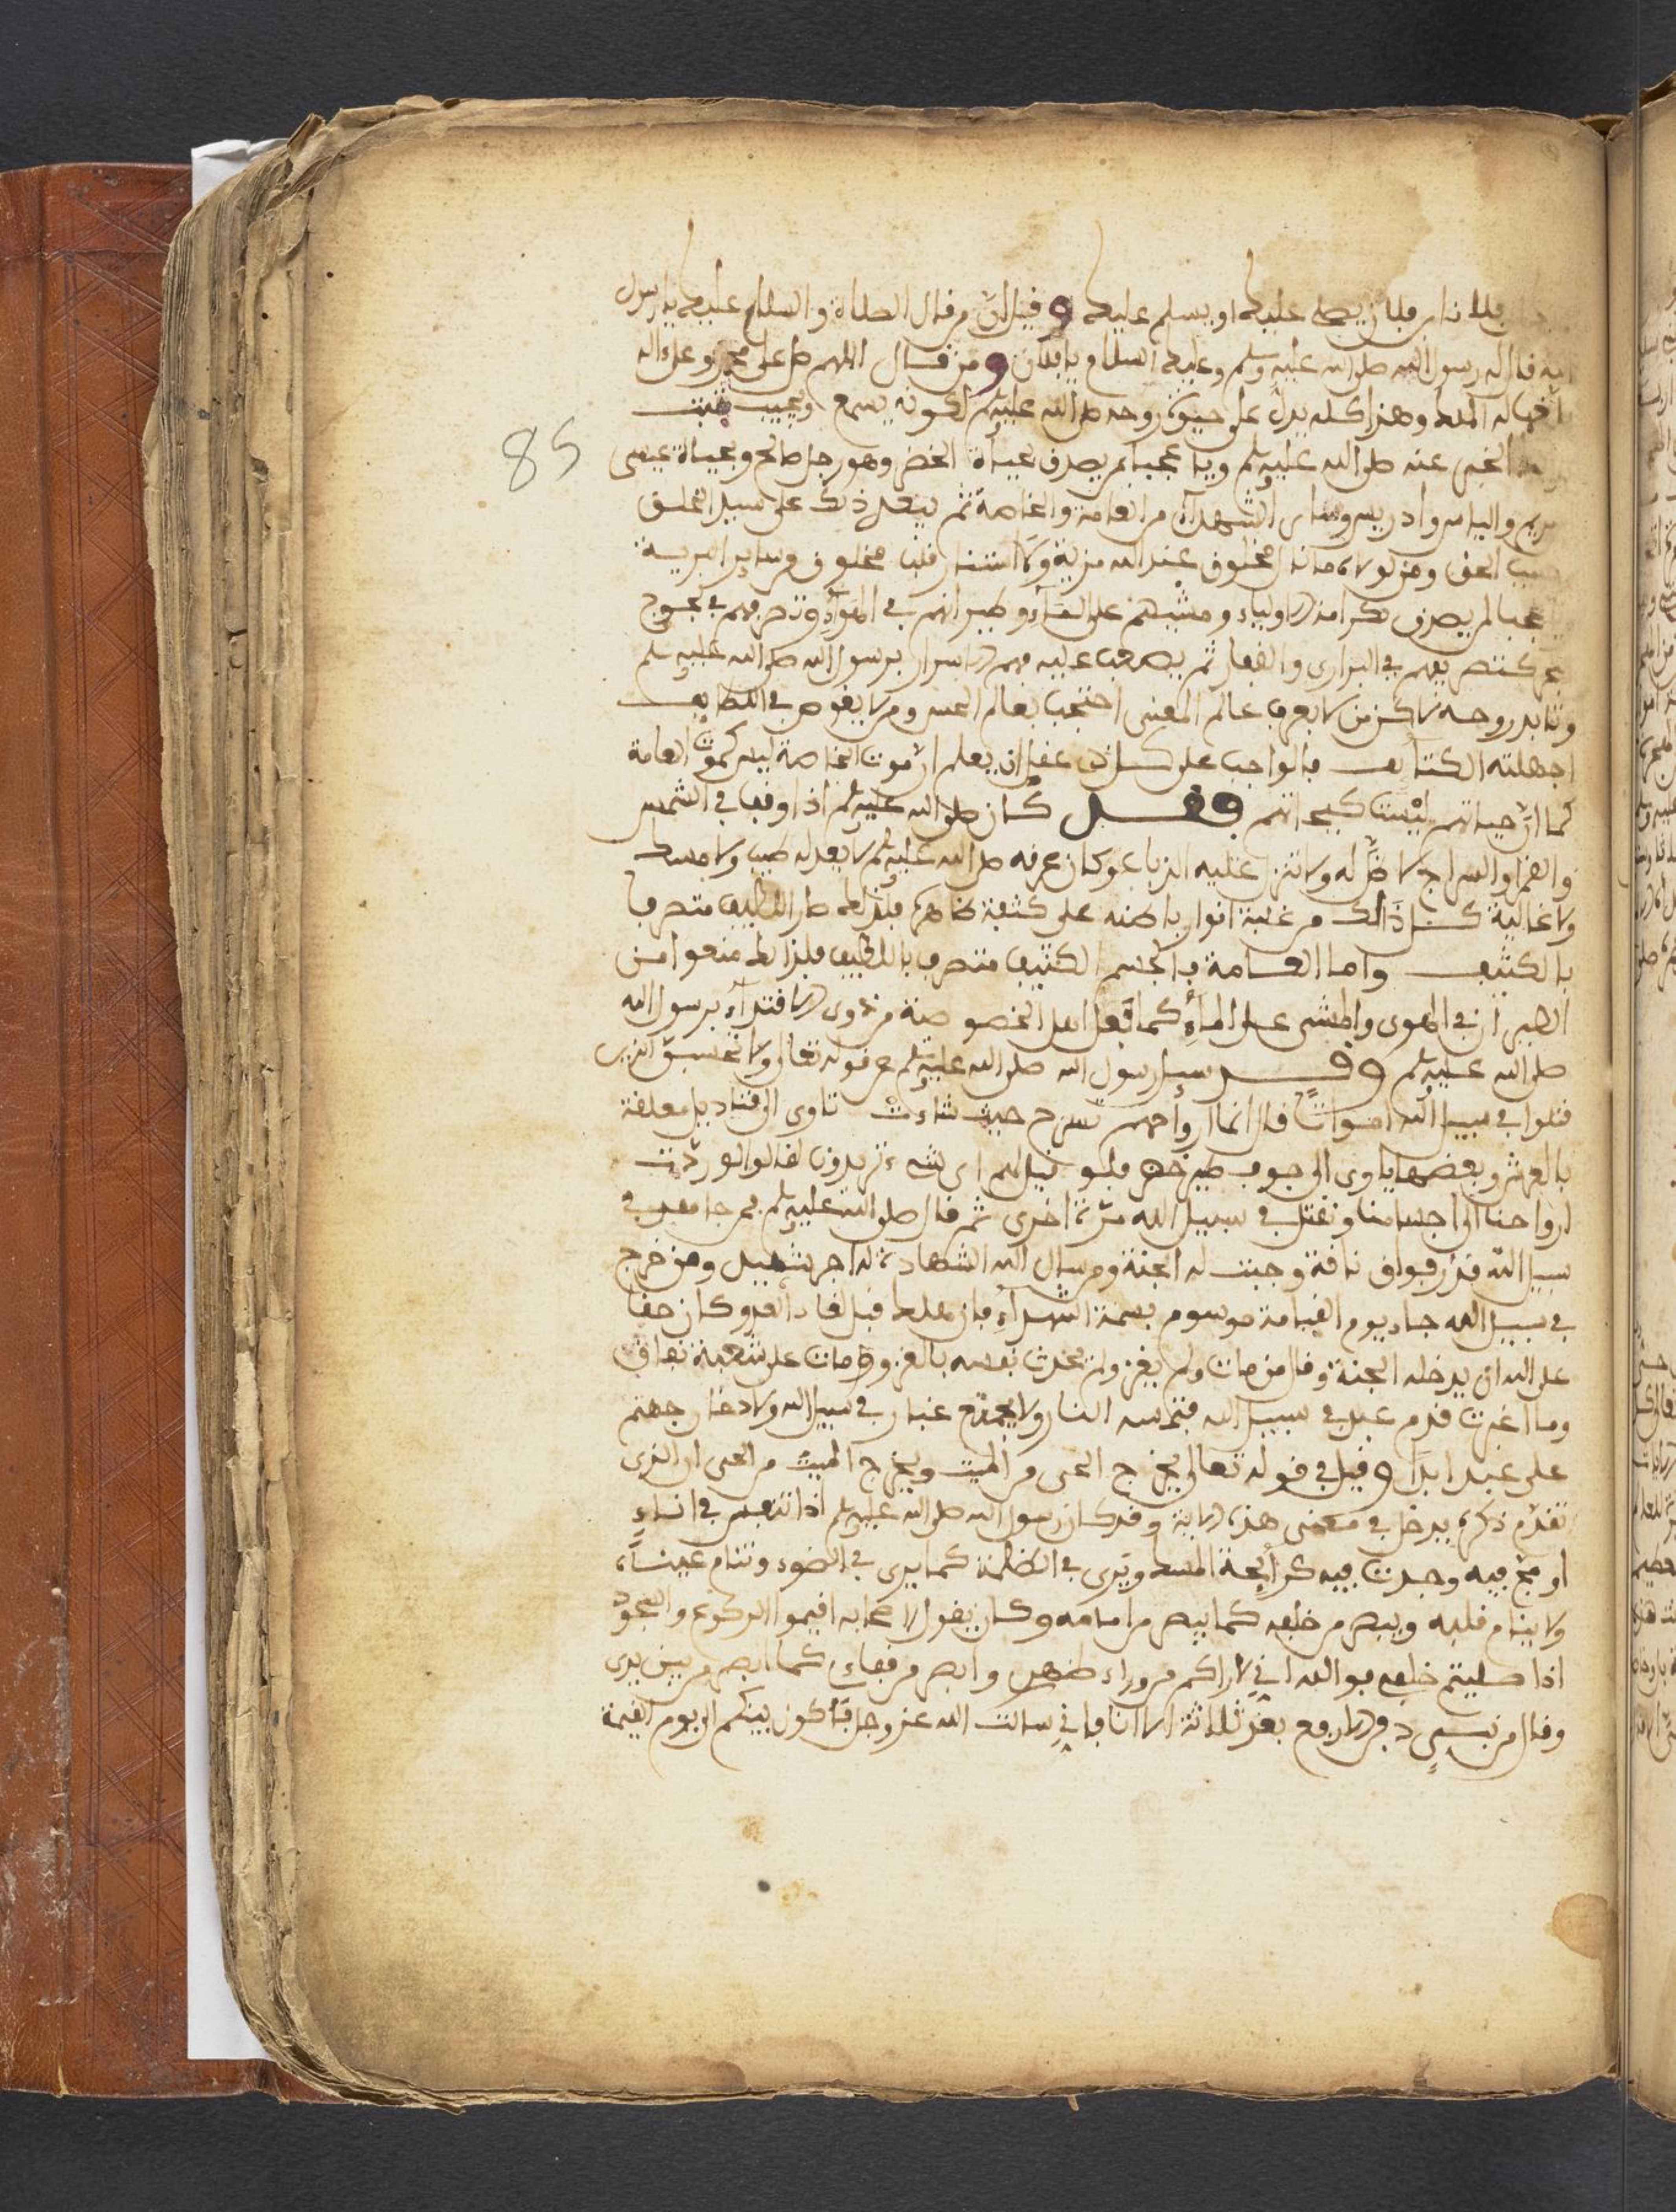 فلانا بن فلان يصلي عليك او يسلم عليك وقيل ان من قال الصلاة والسلام عليك يا رسول
الله قال له رسول الله صلى الله عليه وسلم وعليك السلام يا فلان ومن قال اللهم صل على محمد وعلى اله
الملك وهذا كله يدل على حيوة روحه صلى الله عليه وسلم لكونه يسمع ويجيب
الخبر عنه صلى الله عليه وسلم ويا عجبا لم يصدق بحياة الخضر وهو رجل صالح وبحياة عيسى
مريم والياس وادريس وساير الشهداء من العامة والخاصة ثم
الحق ومن لولاه ما نال مخلوق عند الله مزية ولا مخلوق من ساير البرية
عجبا لمن يصدق بكرامة الاولياء ومشيهم على الماء وطيرانهم في الهواء وتصرفهم في
كتصريفهم في البراري والقفار ثم يصعب عليه فهم الاسرار برسول الله صلى الله عليه وسلم
روحه لاكن من لا يعرف عالم المعنى احتجب بعالم الحس ومن لا يغوص في اللطايف
اجهلته الكثايف فالواجب على كل ذي عقل ان يعلم ان موت الخاصة ليس كموت العامة
كما ان حياتهم ليست كحياتهم وقيل كان صلى الله عليه وسلم اذا وقف في الشمس
والقمر والسراج لا ظل له ولا تنزل عليه الذباب وكان عرقه صلى الله عليه وسلم لا يعدله طيب ولا مسك
ولا غالية كل ذالك من غلبة انوار باطنه على كثيفة ظاهره فلذلك صار اللطيف متصرفا
بالكثيف واما العامة فالجسم الكثيف متصرف باللطيف فلذالك منعوا من
الطيران في الهوى والمشي على الماء كما فعل اهل الخصوصة من ذوي الاقتداء برسول الله
صلى الله عليه وسلم وقد سيل رسول الله صلى الله عليه وسلم عن قوله تعالى ولا تحسبن الذين
قتلوا في سبيل الله امواتا قال انما ارواحهم تسرح حيث شاءت تاوى الى قناديل معلقة
بالعرش وبعضها ياوى الى جوف طير خضر فلو قيل لهم اى شيء تريدون لقالوا لو ردت
ارواحنا الى اجسامنا ونقتل في سبيل الله مرة اخرى ثم قال صلى الله عليه وسلم من جاهد في
سبيل الله قدر فواق ناقة وجبت له الجنة ومن سال الله الشهادة له اجر شهيد ومن خرج
في سبيل الله جاء يوم القيامة موسوم بسمة الشهداء فان هلك قبل لقاء العدو كان حقا
على الله ان يدخله الجنة وقال من مات ولم يغز ولم يحدث نفسه بالغزو مات على شعبة نفاق
وما اغبرت قدم عبد في سبيل الله فتمسه النار ولا يجتمع غبار في سبيل الله ولا دخان جهنم
على عبد ابدا وقيل في قوله تعالى يخرج الحي من الميت ويخرج الميت من الحي ان الذي
تقدم ذكره يدخل في معنى هذه الاية وقد كان رسول الله صلى الله عليه وسلم اذا تنفس في اناء
او مج فيه وجدت فيه كرايحة المسك ويرى في الظلمة كما يرى في الضوء وتنام عيناه
ولا ينام قلبه ويبصر من خلفه كما يبصر من امامه وكان يقول لاصحابه اقيموا الركوع والسجود
اذا صليتم خلفي فوالله اني لاراكم من وراء ظهري وابصر من قفاي كما ابصر من بين يدى
وقال من نبي دفن الا رفع بعد ثلاثة الا انا فاني سالت الله عز وجل ان اكون بينكم الى يوم القيمة
85